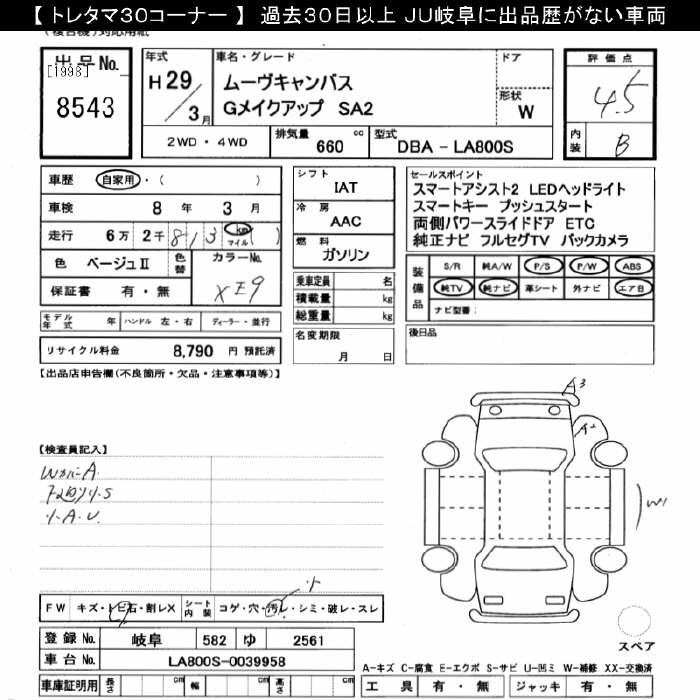 【 トレタマ30コーナー 】 過去30日以上 JU岐阜に出品歴がない車両
(複合機)対応用紙
出品No.
[1998]
8543
年式
H 29 / 3 月
車名・グレード
ムーヴキャンバス
Gメイクアップ SA2
ドア
形状
W
2WD ・ 4WD
排気量 660 cc
型式 DBA - LA800S
評価点
4.5
内装 B
車歴 自家用 ・ ( )
車検 8 年 3 月
走行 6 万 2 千 8 1 3 km マイル ( )
色 ベージュⅡ 色替 カラーNo.
保証書 有 ・ 無 XE9
シフト
IAT
冷房
AAC
燃料
ガソリン
乗車定員 名
積載量 kg
総重量 kg
名変期限
月 日
セールスポイント
スマートアシスト2 LEDヘッドライト
スマートキー プッシュスタート
両側パワースライドドア ETC
純正ナビ フルセグTV バックカメラ
装備品
S/R 純A/W P/S P/W ABS
純TV 純ナビ 革シート 外ナビ エアB
ナビ型番:
後日品
モデル年式 年 ハンドル 左・右 ディーラー・並行
リサイクル料金 8,790 円 預託済
【出品店申告欄(不良箇所・欠品・注意事項等)】
A3
A2
W1
【検査員記入】
WカバーA
S
・A.U
FW キズ・トビ石・割レX シート内装 コゲ・穴・汚レ・シミ・破レ・スレ
小
登録 No. 岐阜 582 ゆ 2561
車台 No. LA800S-0039958
車庫証明用 長さ cm 幅 cm 高さ cm
スペア
A-キズ C-腐食 E-エクボ S-サビ U-凹ミ W-補修 XX-交換済
工具 有 ・ 無 ジャッキ 有 ・ 無